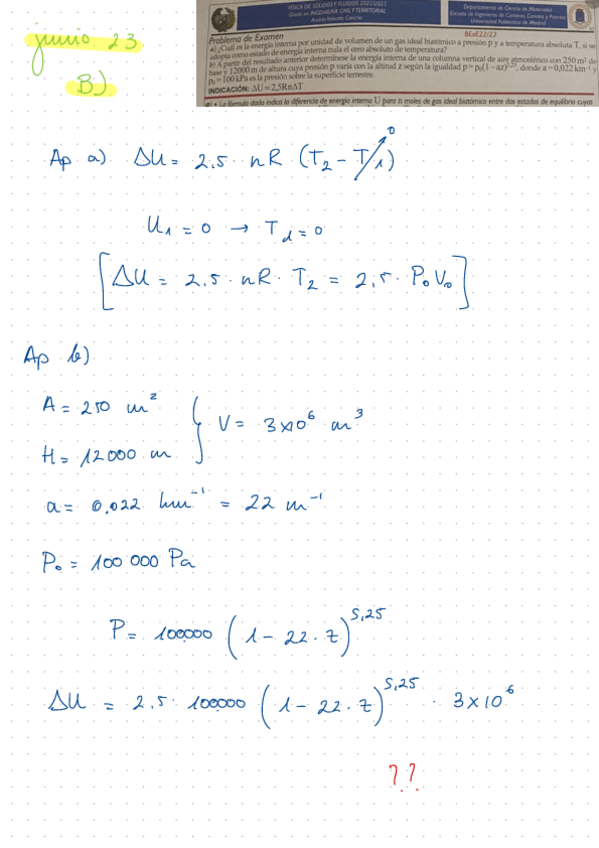 junio 23
B)
FISICA DE SOLIDOS Y FLUIDOS 2022/2023
Grado en INGENIERIA CIVIL Y TERRITORIAL
Departamento de Ciencia de Materiales
Escuela de Ingenieros de Caminos, Canales y Puertos
Universidad Politécnica de Madrid
Problema de Examen
8Ex622/23
a) ¿Cuál es la energía interna por unidad de volumen de un gas ideal biatómico a presión p y a temperatura absoluta T, si se
adopta como estado de energía interna nula el cero absoluto de temperatura?
b) A partir del resultado anterior determínese la energía interna de una columna vertical de aire atmosférico con 250 m² de
base y 12000 m de altura cuya presión p varía con la altitud z según la igualdad p = p₀(1 – az)^5,25, donde a = 0,022 km⁻¹ y
p₀ = 100 kPa es la presión sobre la superficie terrestre.
INDICACIÓN: ΔU = 2,5RnΔT
a) • La fórmula dada indica la diferencia de energía interna U para n moles de gas ideal biatómico entre dos estados de equilibrio cuyas
Ap a) ΔU = 2.5 · nR (T₂ - T₁) 0
U₁ = 0 → T₁ = 0
[ΔU = 2.5 · nR · T₂ = 2,5 · P₀V₀]
Ap b)
A = 250 m²
V = 3x10⁶ m³
H = 12000 m
a = 0,022 km⁻¹ = 22 m⁻¹
P₀ = 100 000 Pa
P = 100000 (1 - 22 · z)^5,25
ΔU = 2.5 · 100000 (1 - 22 · z)^5,25 · 3x10⁶
??